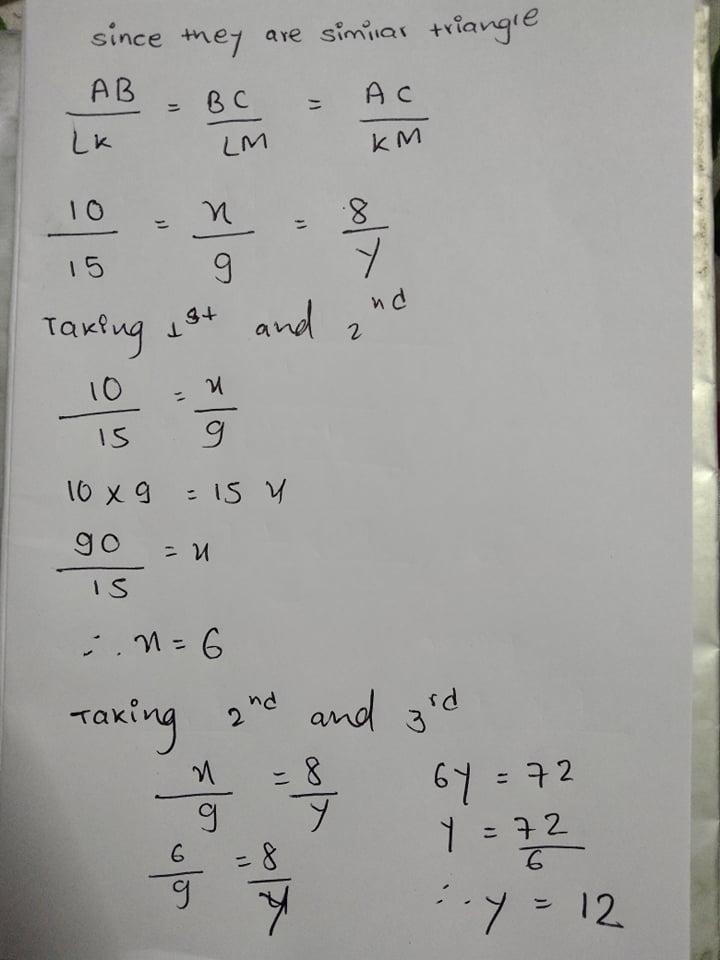 since they are similar triangle
AB/LK = BC/LM = AC/KM
10/15 = x/9 = 8/y
Taking 1st and 2nd
10/15 = x/9
10 x 9 = 15 x
90/15 = x
∴ x = 6
Taking 2nd and 3rd
x/9 = 8/y
6/9 = 8/y
6y = 72
y = 72/6
∴ y = 12